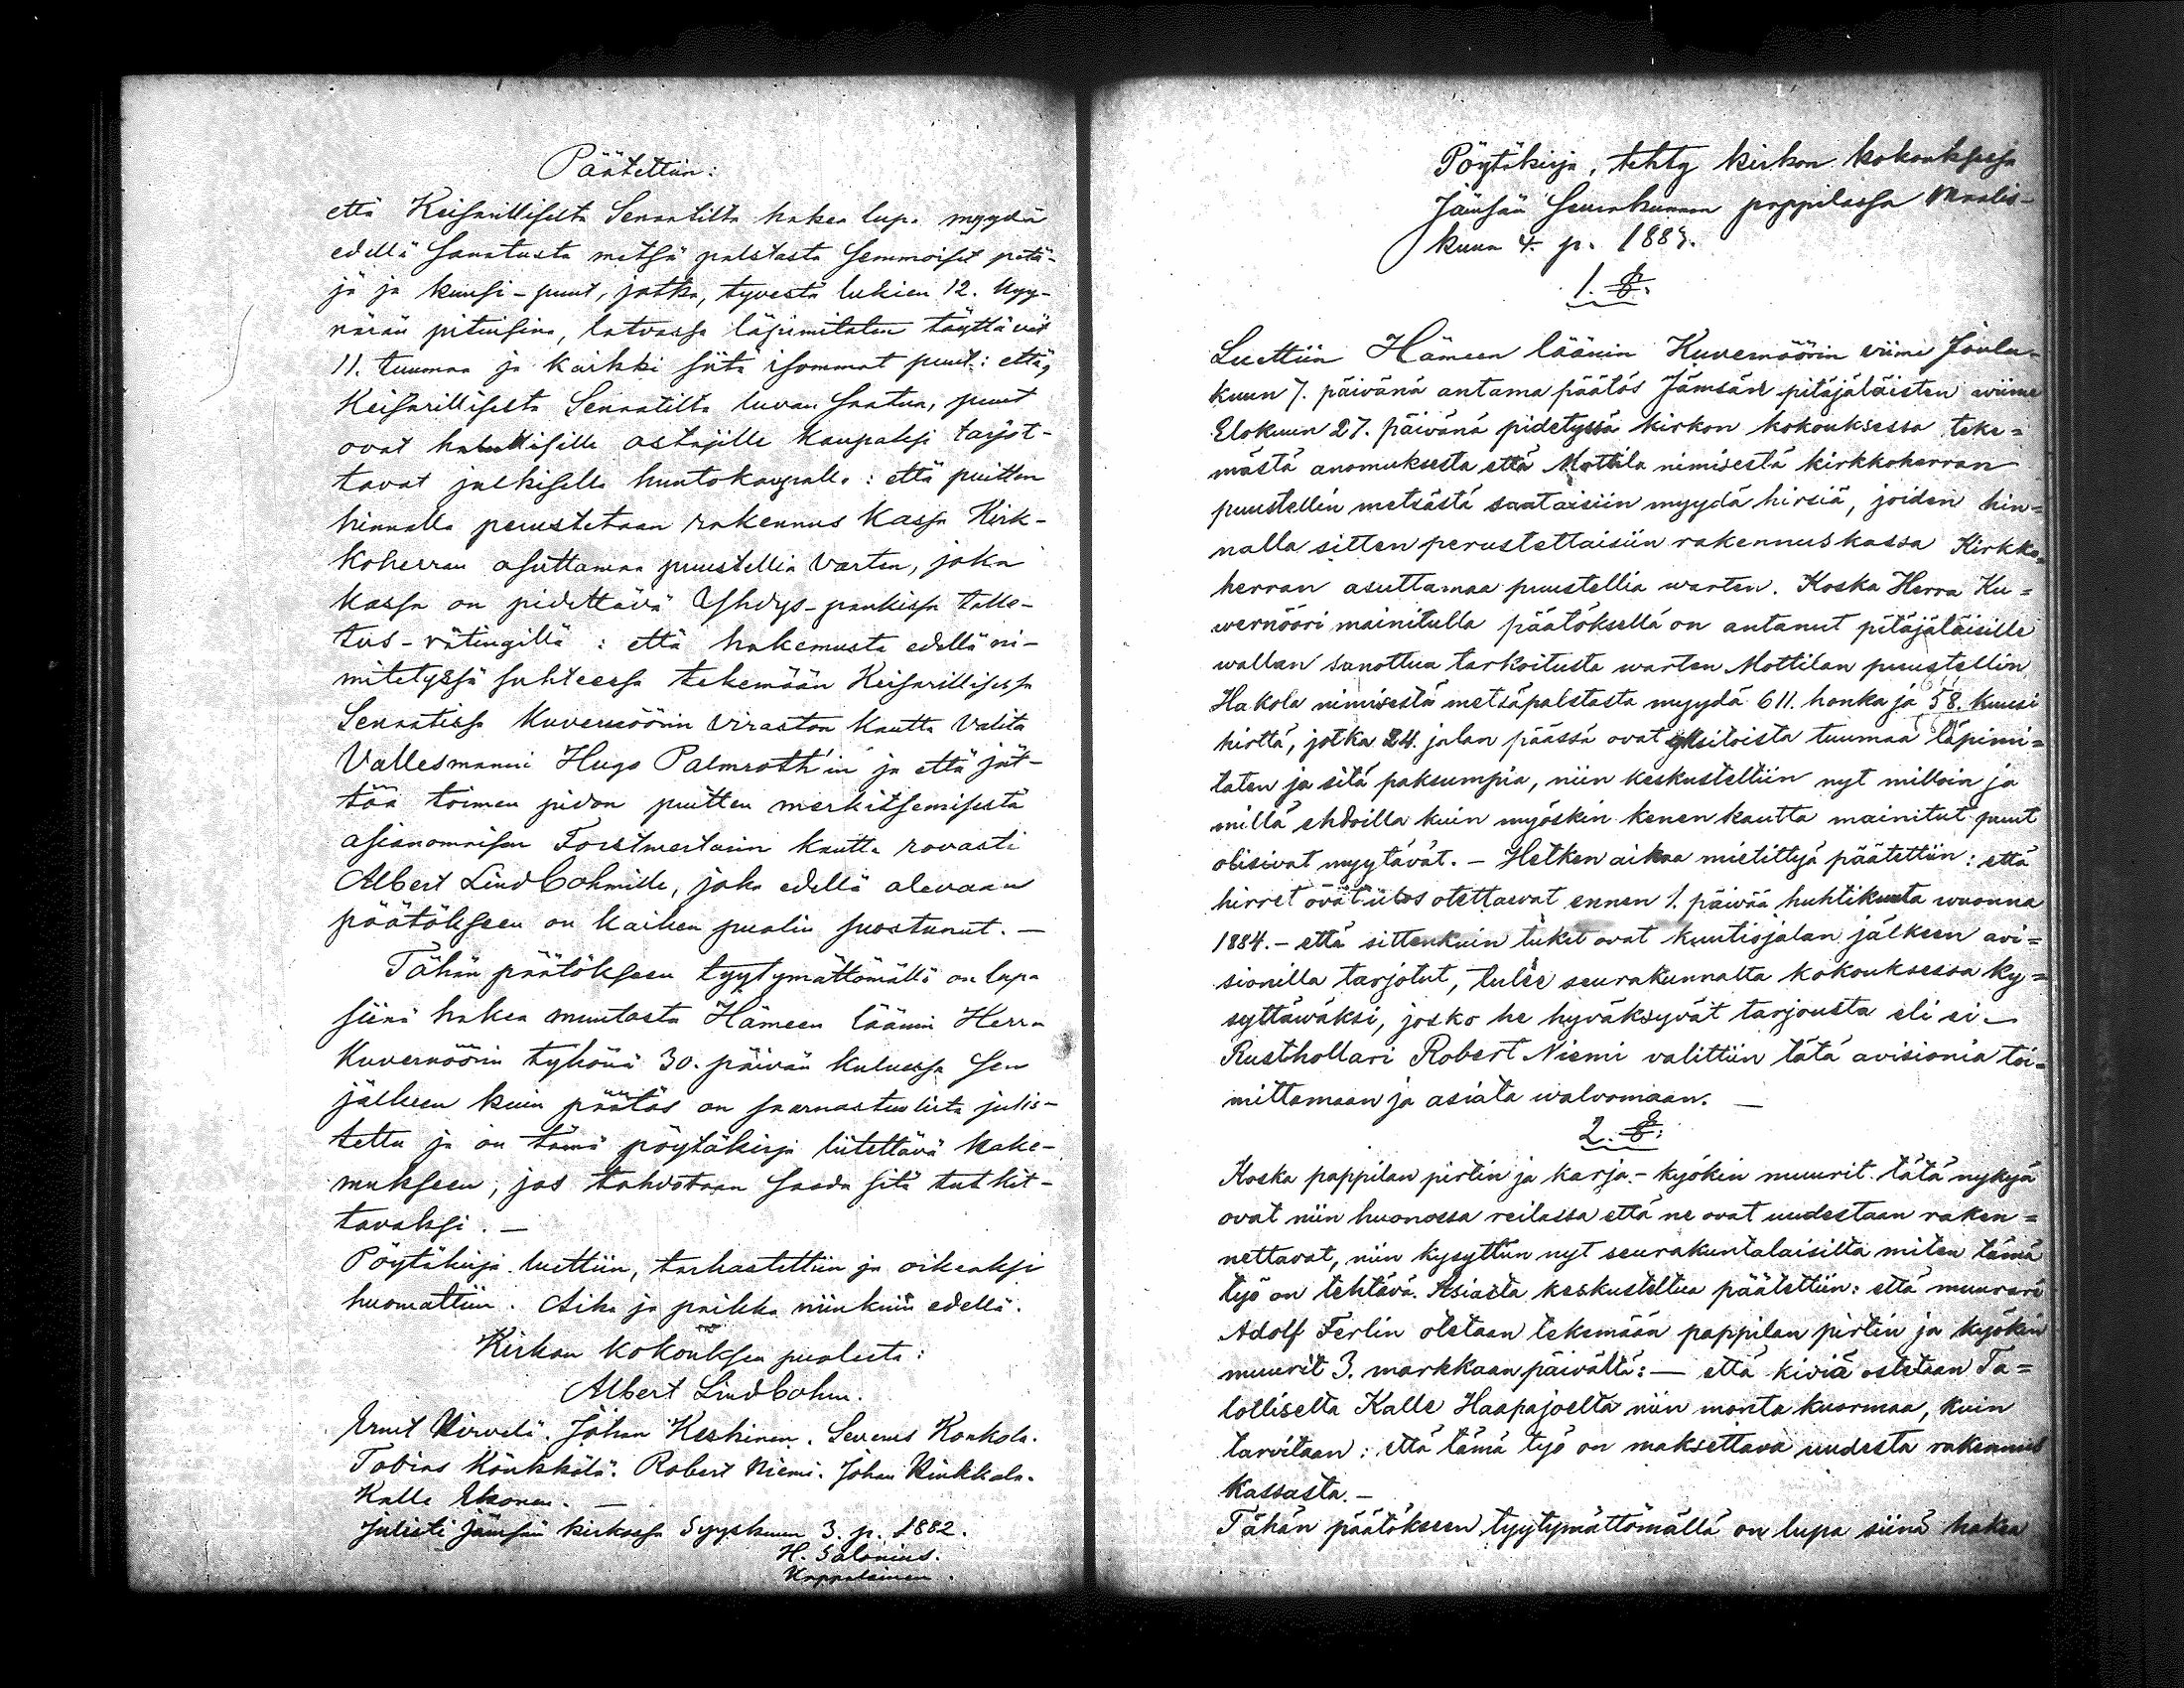 Päätettiin:
että Keisarilliselta Senaatilta hakea lupa myydä
edellä sanotusta metsä palstasta semmoiset petä-
jä ja kuusi-puut, jotka, tyvestä lukien 12. kyy-
närän pituisina, latvassa läpimitaten täyttävät
11. tuumaa ja kaikki siitä isommat puut: että,
Keisarilliselta Senaatilta luvan saatua, puut
ovat halullisille ostajille kaupaksi tarjot-
tavat julkisella huutokaupalla: että puitten
hinnalla perustetaan rakennus kassa Kirk-
koherran asuttamaa puustellia varten, joka
kassa on pidettävä Yhdys-pankissa talle-
tus-rätingillä: että hakemusta edellä ni-
mitetyssä suhteessa tekemään Keisarillisessa
Senaatissa Kuvernöörin viraston kautta valita
Vallesmanni Hugo Palmroth'in ja että jät-
tää toimen pidon puitten merkitsemisestä
asianomaisen Forstmestarin kautta rovasti
Albert Lindbohmille, joka edellä olevaan
päätökseen on kaiken puolin suostunut. —
Tähän päätökseen tyytymättömällä on lupa
siinä hakea muutosta Hämeen läänin Herra
Kuvernöörin tykönä 30. päivän kuluessa sen
jälkeen kuin päätös on saarnastuolista julis-
tettu ja on tämä pöytäkirja liitettävä hake-
mukseen, jos tahdotaan saada sitä tutkit-
tavaksi. —
Pöytäkirja luettiin, tarkastettiin ja oikeaksi
huomattiin. Aika ja paikka niinkuin edellä.
Kirkon kokouksen puolesta:
Albert Lindbohm.
Ernst Hirvelä. Johan Keskinen. Severus Konkola.
Tobias Könkkölä. Robert Niemi. Johan
Kalle Ekonen. —
Julisti Jämsän kirkossa Syyskuun 3. p. 1882.
H. Salonius.
Kappalainen.
Pöytäkirja, tehty kirkon kokouksessa
Jämsän seurakunnan pappilassa Maalis-
kuun 4. p. 1883.
1. §:
Luettiin Hämeen läänin Kuvernöörin viime Joulu-
kuun 7. päivänä antama päätös Jämsän pitäjäläisten wiime
Elokuun 27. päivänä pidetyssä kirkon kokouksessa teke=
mästä anomuksesta että Mottila nimisestä kirkkoherran
puustellin metsästä saataisiin myydä hirsiä, joiden hin=
nalla sitten perustettaisiin rakennuskassa Kirkko=
herran asuttamaa puustellia warten. Koska Herra Ku=
wernööri mainitulla päätöksellä on antanut pitäjäläisille
wallan sanottua tarkoitusta warten Mottilan puustellin
Hakola nimisestä metsäpalstasta myydä 611. honka ja 58. kuusi
hirttä, jotka 24. jalan päässä ovat yksitoista tuumaa läpimi=
taten ja sitä paksumpia, niin keskusteltiin nyt milloin ja
millä ehdoilla kuin myöskin kenen kautta mainitut puut
olisivat myytävät. — Hetken aikaa mietittyä päätettiin: että
hirret ovat ulos otettawat ennen 1. päivää huhtikuuta wuonna
1884. — että sittenkuin tukit ovat kuutiojalan jälkeen avi=
sionilla tarjotut, tulee seurakunnalta kokouksessa ky=
syttäwäksi, josko he hyväksyvät tarjousta eli ei. —
Rusthollari Robert Niemi valittiin tätä avisionia toi=
mittamaan ja asiata walvomaan. —
2. §:
Koska pappilan pirtin ja karja-kyökin muurit tätä nykyä
ovat niin huonossa reilassa että ne ovat uudestaan raken=
nettavat, niin kysyttiin nyt seurakuntalaisilta miten tämä
työ on tehtävä. Asiasta keskusteltua päätettiin: että muurari
Adolf Ferlin otetaan tekemään pappilan pirtin ja kyökin
muurit 3. markkaan päivältä: — että kiviä ostetaan Ta=
lolliselta Kalle Haapajoelta niin monta kuormaa, kuin
tarvitaan: että tämä työ on maksettava uudesta rakennus
kassasta. —
Tähän päätökseen tyytymättömällä on lupa siinä hakea